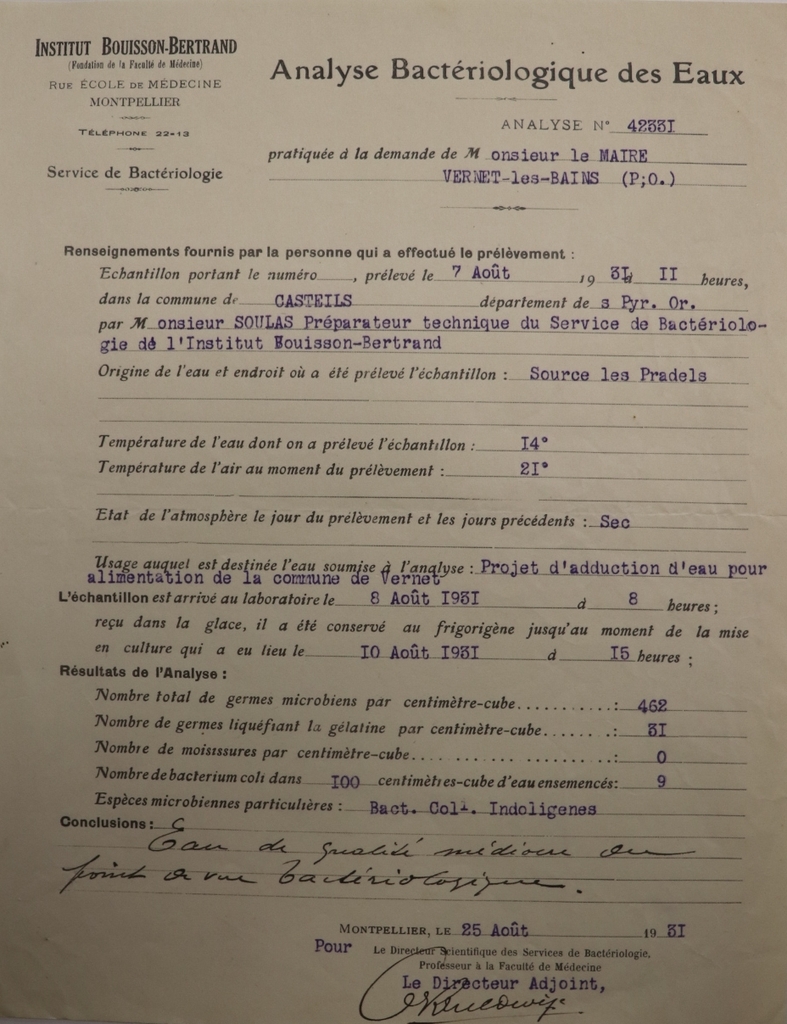 INSTITUT BOUISSON-BERTRAND
(Fondation de la Faculté de Médecine)
RUE ÉCOLE DE MÉDECINE
MONTPELLIER
TÉLÉPHONE 22-13
Service de Bactériologie
Analyse Bactériologique des Eaux
ANALYSE N° 4233I
pratiquée à la demande de M onsieur le MAIRE
VERNET-les-BAINS (P;O.)
Renseignements fournis par la personne qui a effectué le prélèvement :
Echantillon portant le numéro , prélevé le 7 Août 19 31, II heures,
dans la commune de CASTEILS département de s Pyr. Or.
par M onsieur SOULAS Préparateur technique du Service de Bactériolo-
gie dé l'Institut Bouisson-Bertrand
Origine de l'eau et endroit où a été prélevé l'échantillon : Source les Pradels
Température de l'eau dont on a prélevé l'échantillon : I4°
Température de l'air au moment du prélèvement : 2I°
Etat de l'atmosphère le jour du prélèvement et les jours précédents : Sec
Usage auquel est destinée l'eau soumise à l'analyse : Projet d'adduction d'eau pour
alimentation de la commune de Vernet
L'échantillon est arrivé au laboratoire le 8 Août I93I à 8 heures ;
reçu dans la glace, il a été conservé au frigorigène jusqu'au moment de la mise
en culture qui a eu lieu le IO Août I93I à I5 heures ;
Résultats de l'Analyse :
Nombre total de germes microbiens par centimètre-cube...........: 462
Nombre de germes liquéfiant la gélatine par centimètre-cube.......: 3I
Nombre de moisissures par centimètre-cube....................: 0
Nombre de bacterium coli dans IOO centimètres-cube d'eau ensemencés: 9
Espèces microbiennes particulières : Bact. Coli. Indoligenes
Conclusions :
Eau de qualité médiocre au
point de vue bactériologique.
MONTPELLIER, LE 25 Août 19 3I
Pour Le Directeur Scientifique des Services de Bactériologie,
Professeur à la Faculté de Médecine
Le Directeur Adjoint,